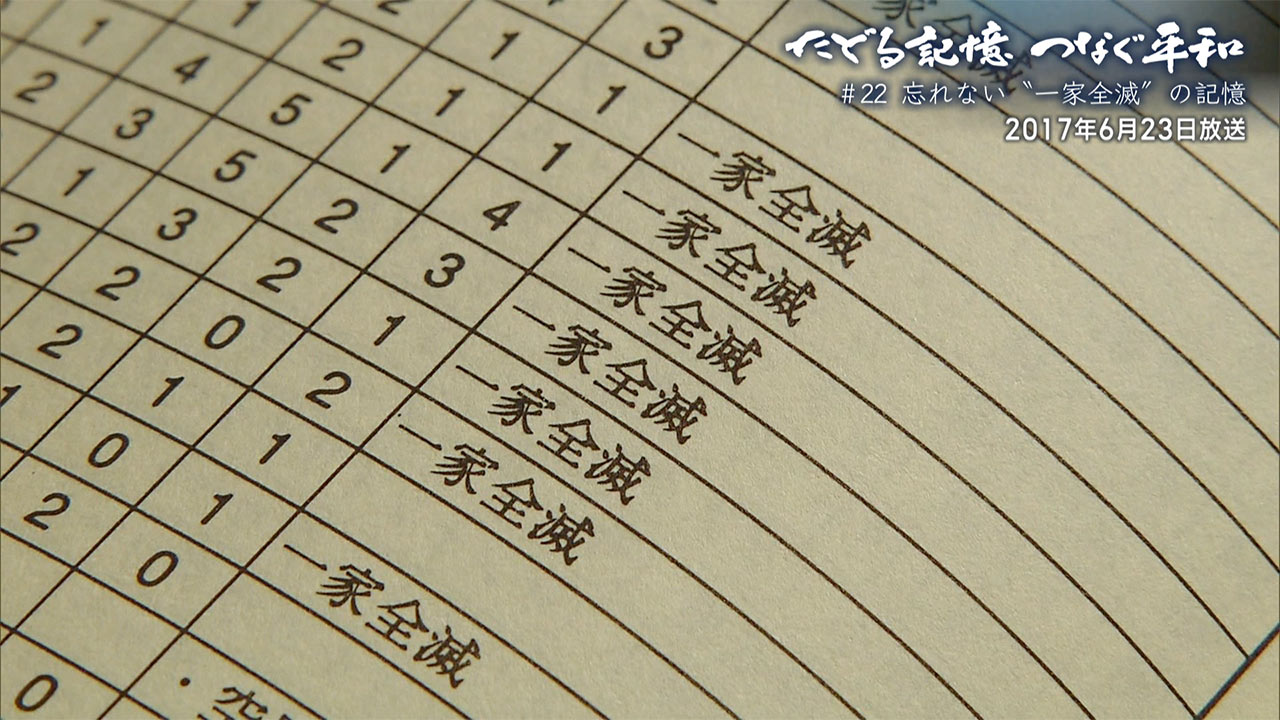 たどる記憶 つなぐ平和
#22 忘れない〝一家全滅〟の記憶
2017年6月23日放送
3
2 1 1 一家全滅
1 2 1 1 一家全滅
1 4 5 1 4 一家全滅
2 3 5 2 3 一家全滅
1 3 2 1 一家全滅
2 2 0 2 一家全滅
2 1 1
1 0 1 一家全滅
2 0
0 ・空